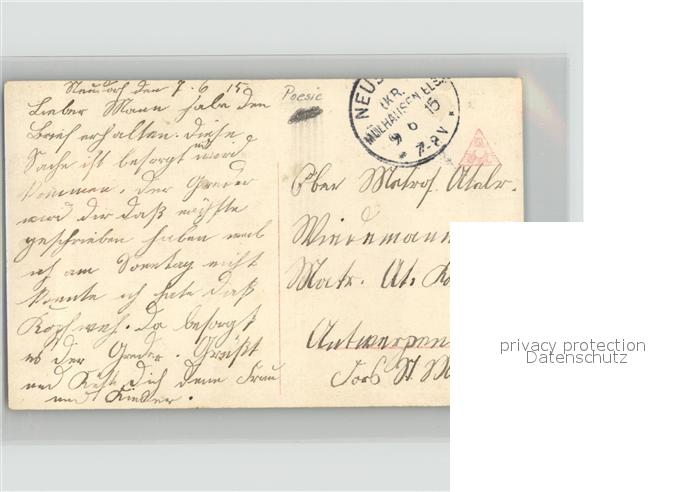 Neudorf den 7. 6 15.
Lieber Mann habe den
Brief erhalten. diese
Sache ist besorgt und wird
kommen. der
wird dir daß nächste
geschrieben haben weil
ich am Sonntag nicht
konnte ich hate daß
Kopfweh. da besorgt
es der. Grüßt
und Küßt dich deine Frau
und Kinder.
Poesie
NEU
(KR.
MÜLHAUSEN ELS
9 6 15
* 7-8 V *
Ober Matros. Artlr.
Wiedemann
Matr. At.
Antwerpen
Fors St. M
privacy protection
Datenschutz